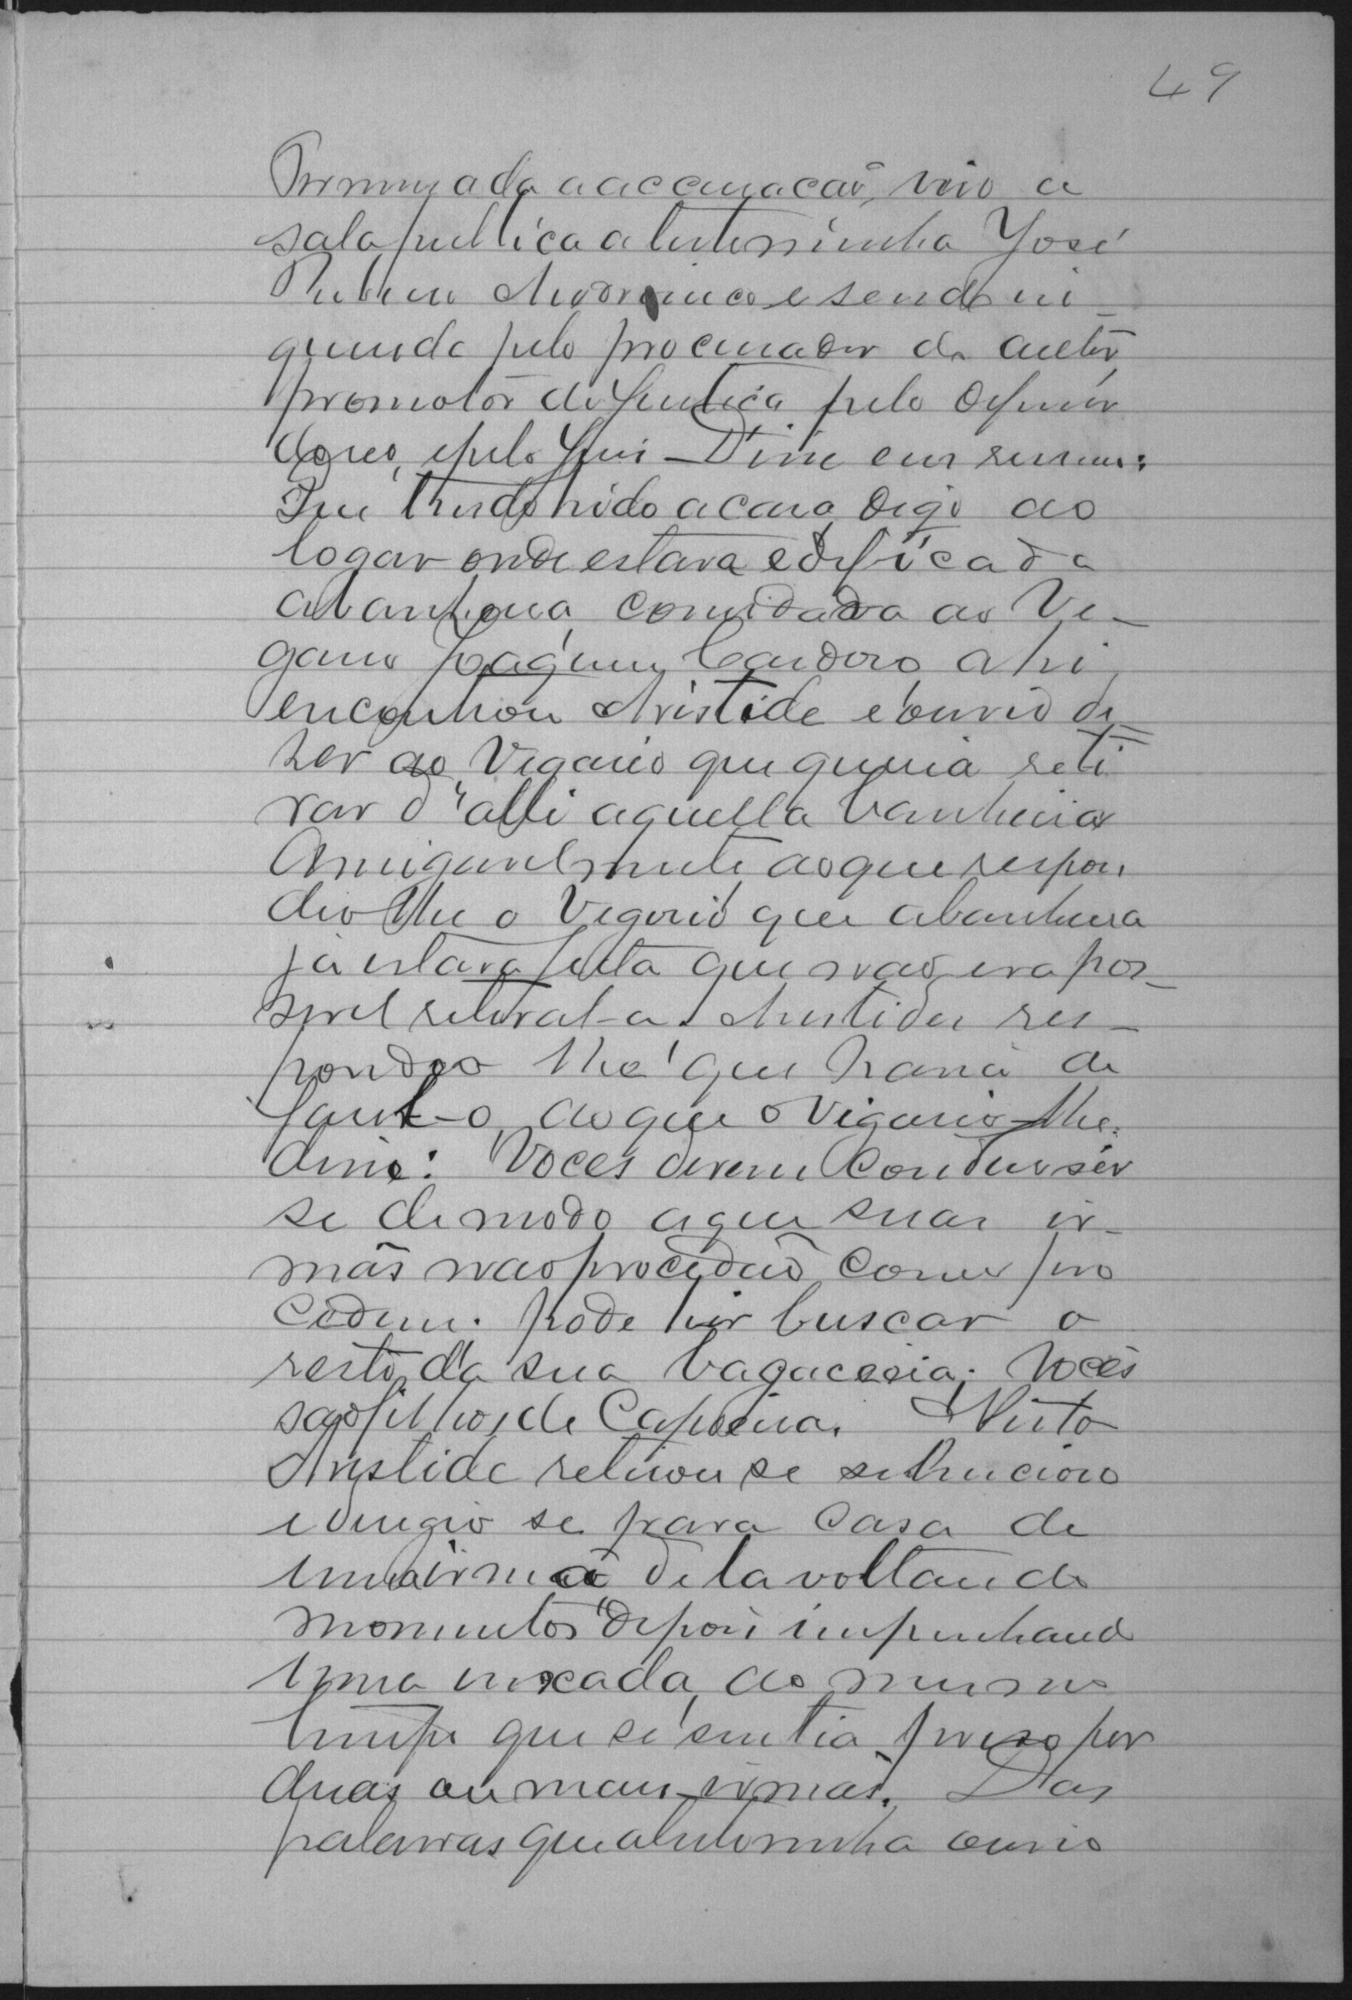 49
Terminada a accusacaõ, veio a
sala publica a testemunha José
Rubino Americo e sendo in-
querido pelo procurador do autor,
promotor de Justiça pelo defensor
do reo, e pelo Juiz - Disse em resumo:
Que tendo hido a casa, digo ao
logar onde estava edificada
a banheira, convidado ao Vi-
gario Joaquim Cardoso, ahi
encontrou Aristide e ouvio di=
zer ao Vigario que queria reti
rar d'alli aquella banheira
Amigavelmente ao que respon
deo lhe o Vigario que a banheira
já estava feita que nao era pos-
sivel retiral-a. Aristides res-
pondeo lhe que havia de
fasel-o, ao que o Vigario lhe
disse: Voces devem conduser
se de modo a que suas ir-
mãs nao procedaõ como pro
cedem. pode hir buscar o
resto da sua bagaceria; Voces
sao filhos de Capoeira. Nisto
Aristide retirou se silencioso
e dirigio se para casa de
uma irmã de la voltando
momentos depois impunhando
uma inxada, ao mesmo
tempo que se sentia preso por
duas ou mais irmãs. Das
palavras que a testemunha ouvio